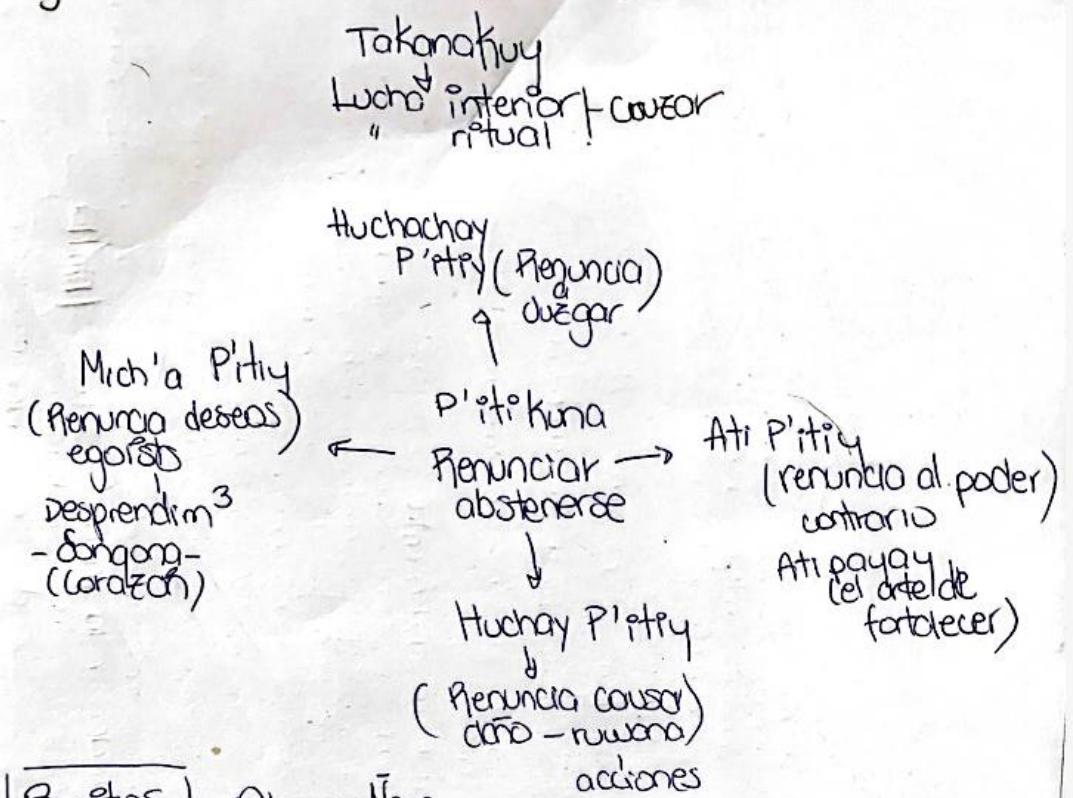 Takanakuy
Lucha interior
" ritual
cauzar
Huchachay
P'itiy (Renuncia)
a
Juzgar
Mich'a P'itiy
(Renuncia deseos)
egoists
Desprendim³
- Songona -
(Corazón)
P'iti kuna
Renunciar
abstenerse
Ati P'itiy
(renuncia al poder)
contrario
Ati payay
(el arte de
fortalecer)
Huchay P'itiy
(Renuncia causar)
daño - ruwana
acciones